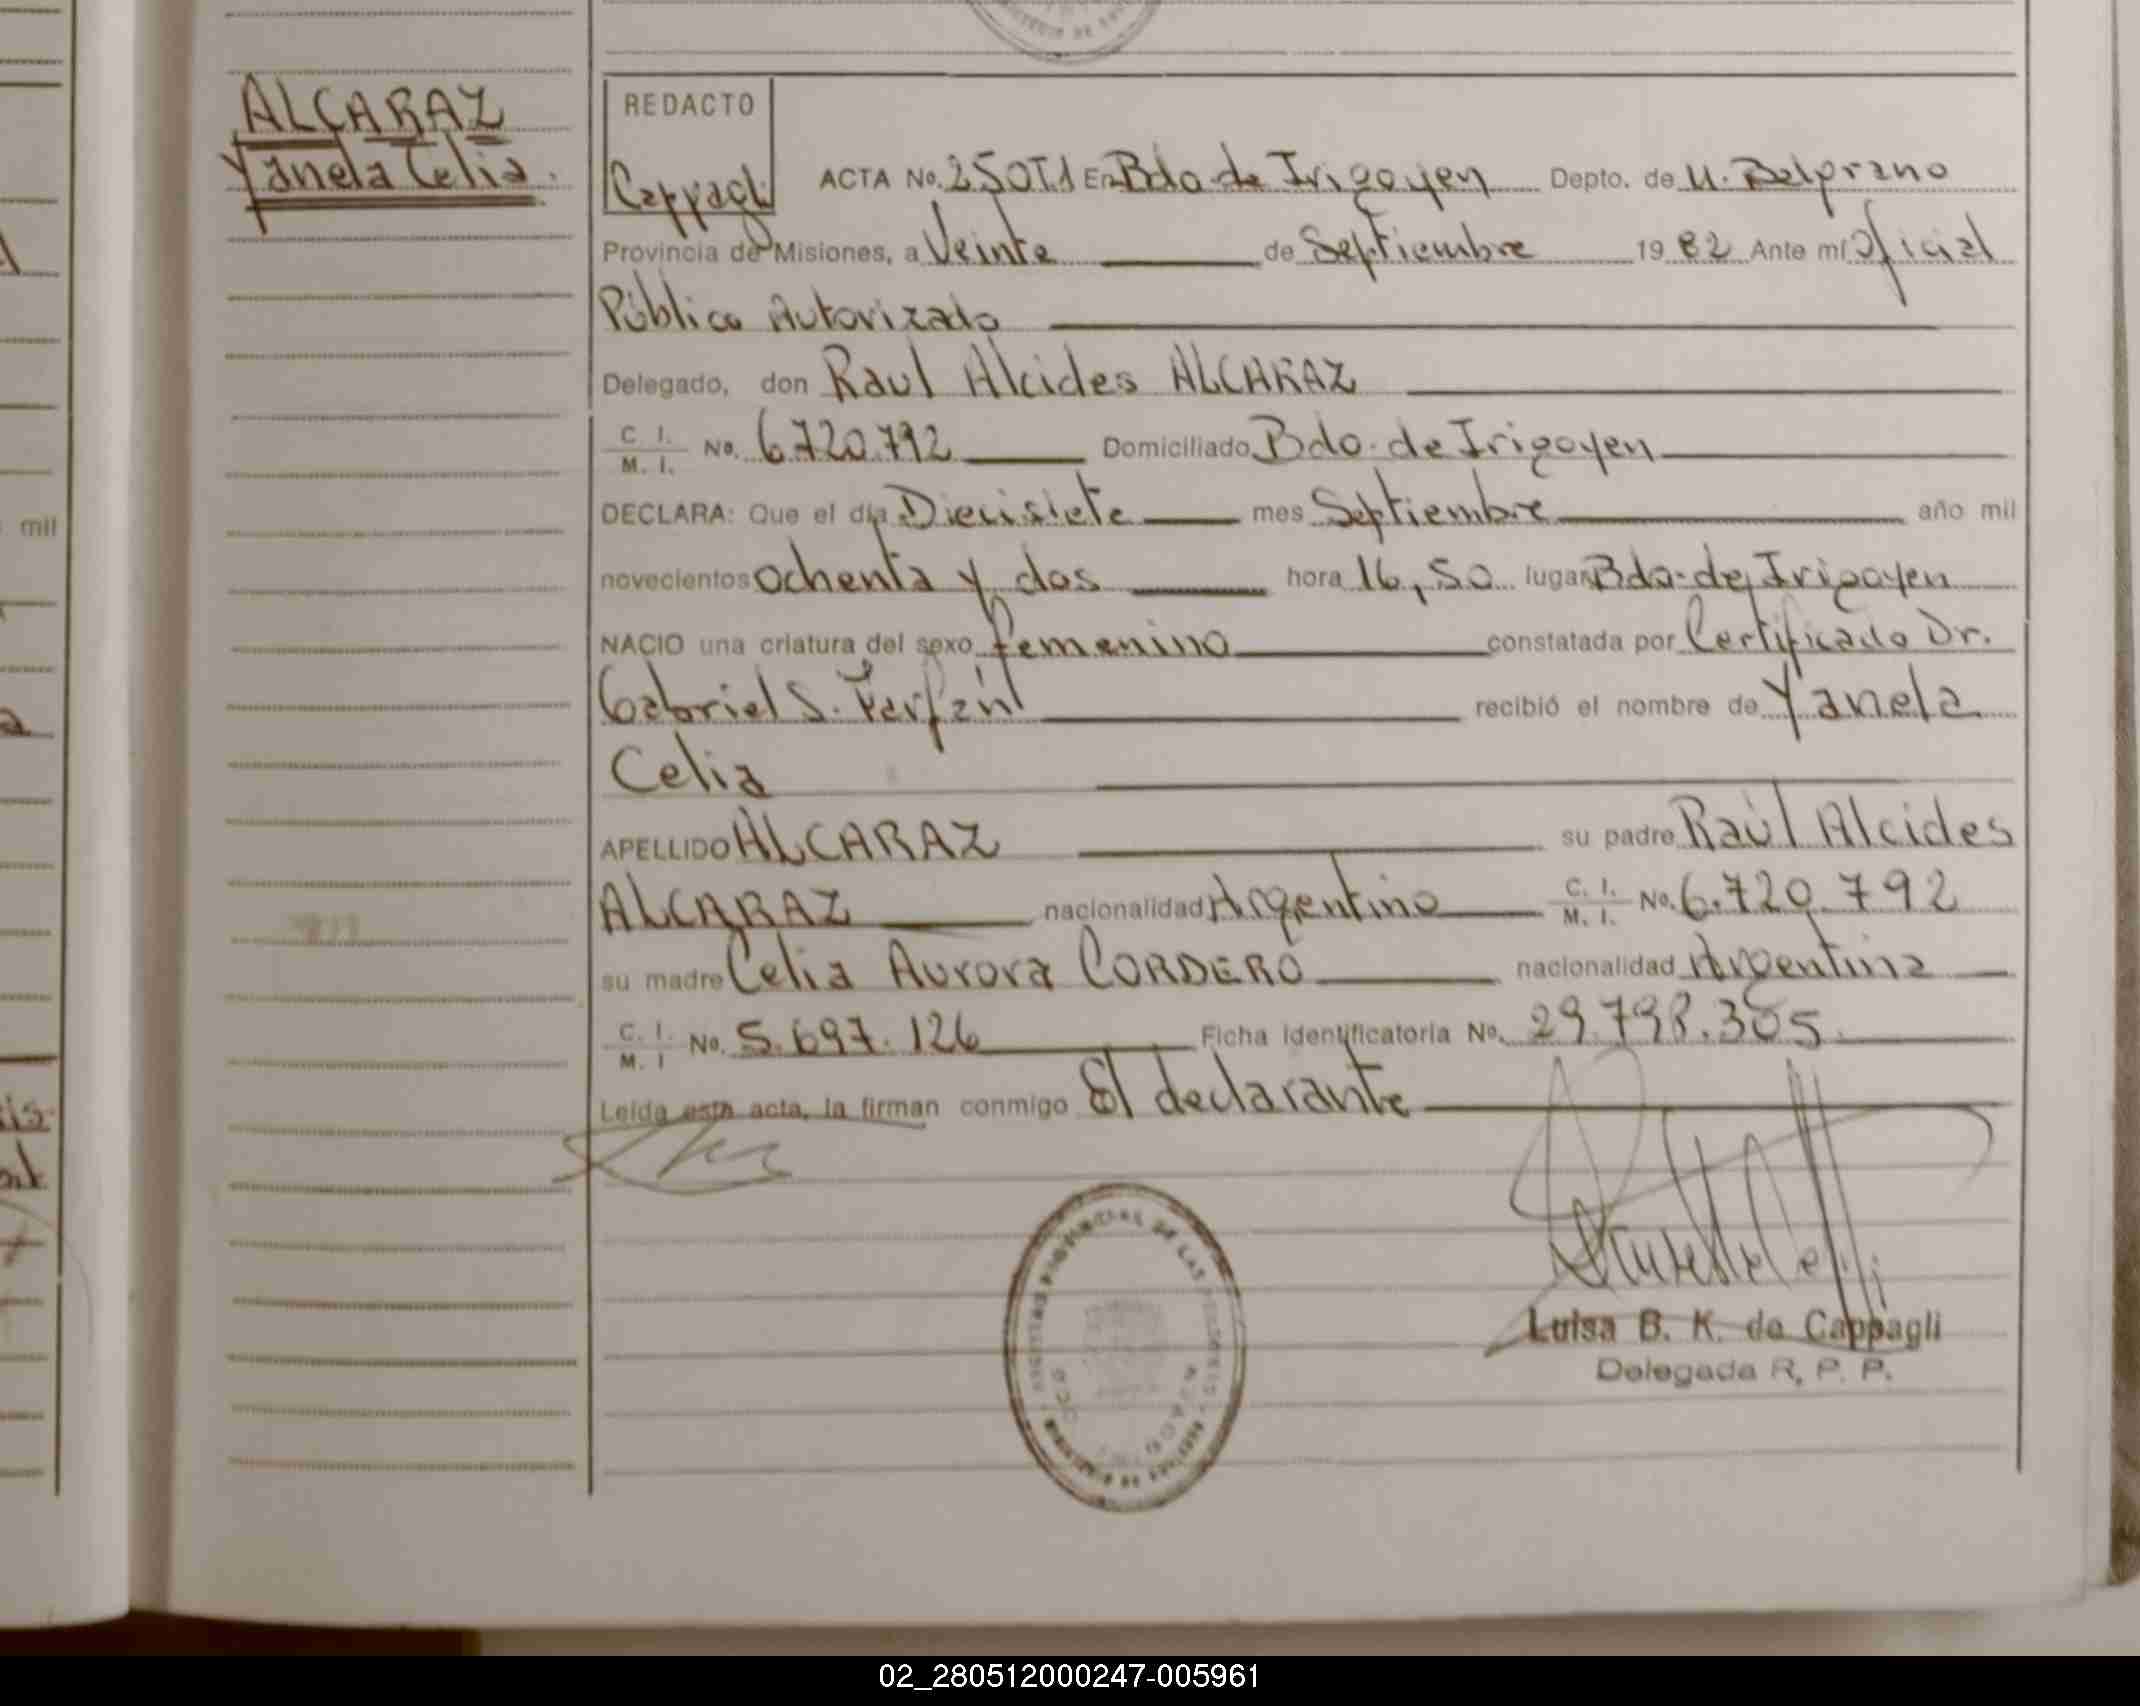 ALCARAZ
Yanela Celia.
REDACTO
Cappagli
ACTA No. 250T1 En Bdo. de Irigoyen Depto. de M. Belgrano
Provincia de Misiones, a Veinte de Septiembre 19 82 Ante mí Oficial
Público Autorizado
Delegado, don Raul Alcides ALCARAZ
C. I. / M. I. No. 6.720.792 Domiciliado Bdo. de Irigoyen
DECLARA: Que el día Diecisiete mes Septiembre año mil
novecientos ochenta y dos hora 16,50 lugar Bdo. de Irigoyen
NACIO una criatura del sexo femenino constatada por Certificado Dr.
Gabriel S. recibió el nombre de Yanela
Celia
APELLIDO ALCARAZ su padre Raúl Alcides
ALCARAZ nacionalidad Argentino C. I. / M. I. No. 6.720.792
su madre Celia Aurora CORDERO nacionalidad Argentina
C. I. / M. I No. 5.697.126 Ficha identificatoria No. 29.798.305.
Leída esta acta, la firman conmigo El declarante
Luisa B. K. de Cappagli
Delegada R. P. P.
mil
02_280512000247-005961